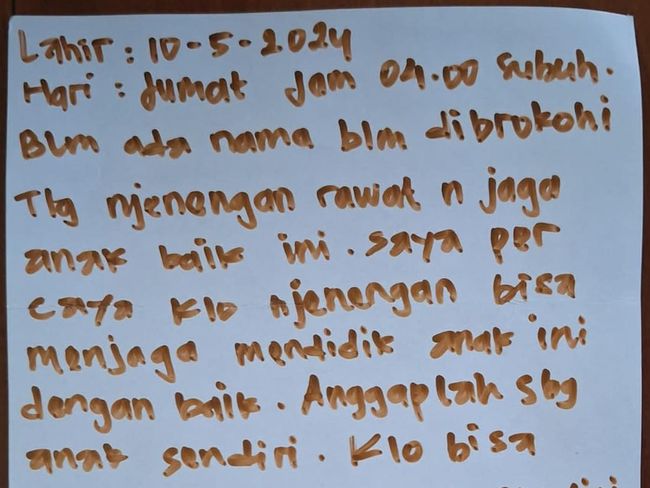 Lahir : 10-5-2024
Hari : Jumat Jam 04.00 Subuh.
Blm ada nama blm dibrokohi
Tlg njenengan rawat n jaga
anak baik ini. saya per
caya klo njenengan bisa
menjaga mendidik anak ini
dengan baik. Anggaplah sbg
anak sendiri. Klo bisa